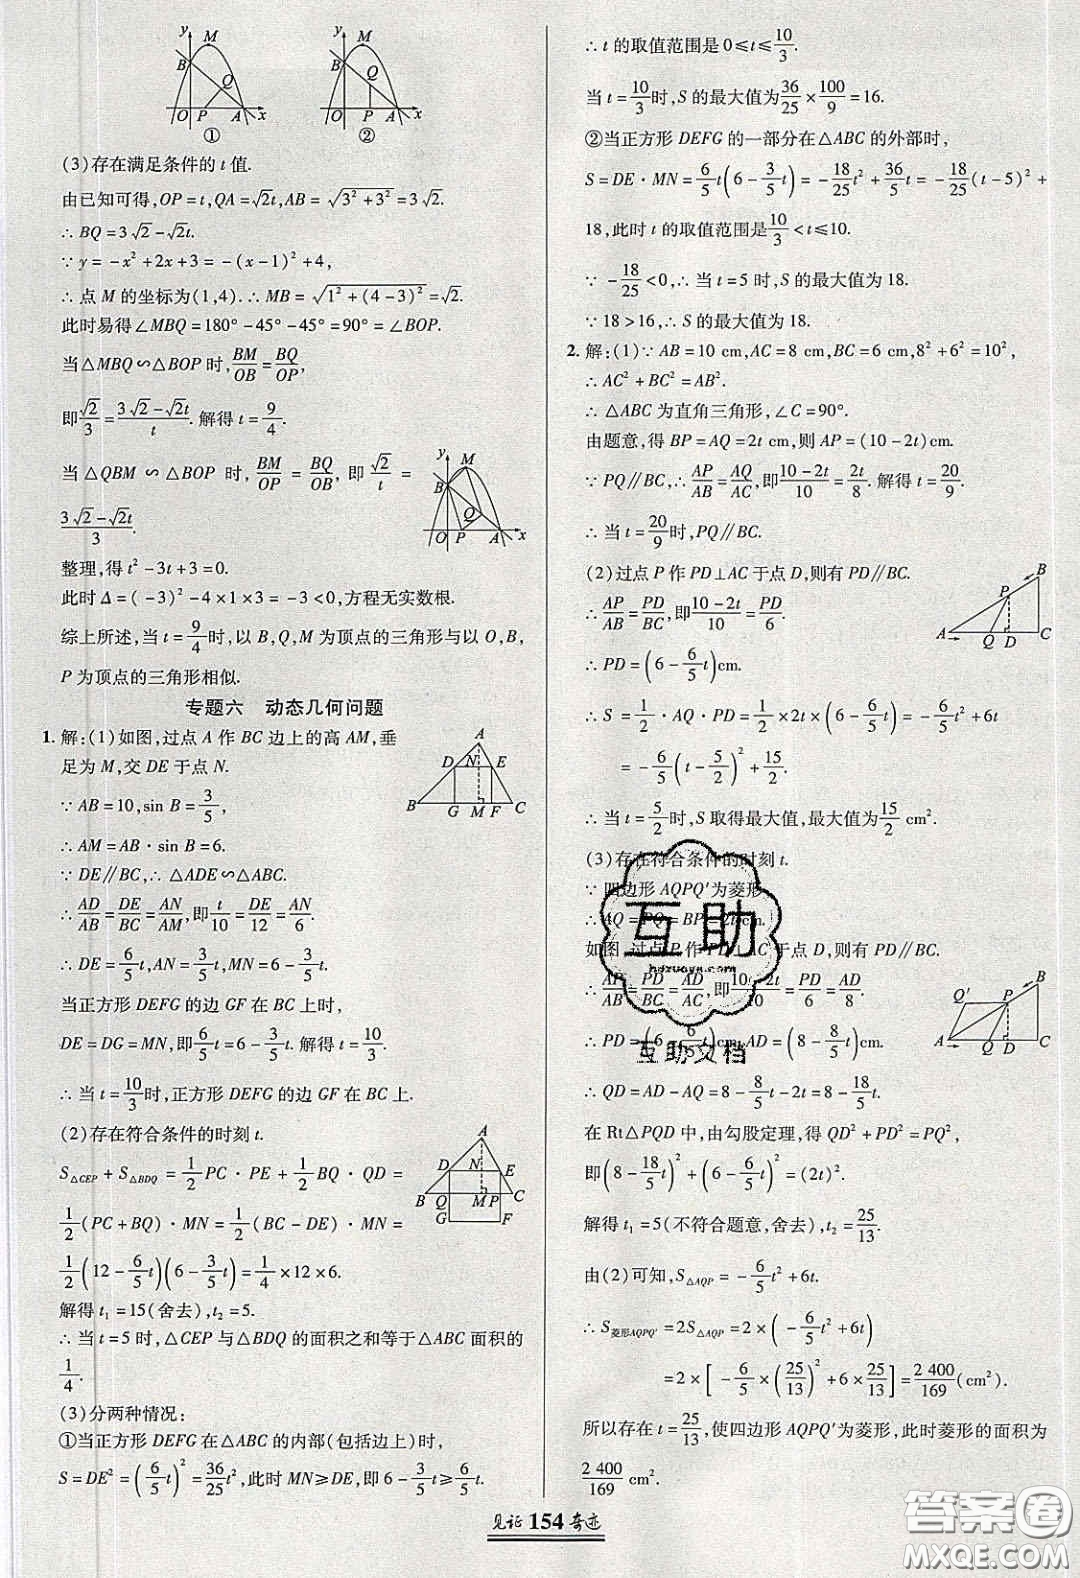 y M B Q O P A x ①
y M B Q O P A x ②
(3)存在满足条件的 t 值.
由已知可得,OP=t,QA=√2t,AB=√(3²+3²)=3√2.
∴ BQ=3√2-√2t.
∵ y=-x²+2x+3=-(x-1)²+4,
∴ 点 M 的坐标为(1,4).∴ MB=√(1²+(4-3)²)=√2.
此时易得∠MBQ=180°-45°-45°=90°=∠BOP.
当△MBQ∽△BOP 时,BM/OB=BQ/OP,
即√2/3=(3√2-√2t)/t. 解得 t=9/4.
当△QBM∽△BOP 时,BM/OP=BQ/OB,即√2/t=
(3√2-√2t)/3.
y M B Q O P A x
整理,得 t²-3t+3=0.
此时 Δ=(-3)²-4×1×3=-3<0,方程无实数根.
综上所述,当 t=9/4时,以 B,Q,M 为顶点的三角形与以 O,B,
P 为顶点的三角形相似.
专题六 动态几何问题
1. 解:(1)如图,过点 A 作 BC 边上的高 AM,垂
足为 M,交 DE 于点 N.
A D N E B G M F C
∵ AB=10,sin B=3/5,
∴ AM=AB·sin B=6.
∵ DE∥BC,∴ △ADE∽△ABC.
∴ AD/AB=DE/BC=AN/AM,即t/10=DE/12=AN/6.
∴ DE=6/5t,AN=3/5t,MN=6-3/5t.
当正方形 DEFG 的边 GF 在 BC 上时,
DE=DG=MN,即6/5t=6-3/5t. 解得 t=10/3.
∴ 当 t=10/3时,正方形 DEFG 的边 GF 在 BC 上.
(2)存在符合条件的时刻 t.
S△CEP+S△BDQ=1/2PC·PE+1/2BQ·QD=
1/2(PC+BQ)·MN=1/2(BC-DE)·MN=
A D N E B Q M P C G F
1/2(12-6/5t)(6-3/5t)=1/4×12×6.
解得 t₁=15(舍去),t₂=5.
∴ 当 t=5 时,△CEP 与△BDQ 的面积之和等于△ABC 面积的
1/4.
(3)分两种情况:
①当正方形 DEFG 在△ABC 的内部(包括边上)时,
S=DE²=(6/5t)²=36/25t²,此时 MN≥DE,即 6-3/5t≥6/5t.
∴ t 的取值范围是 0≤t≤10/3.
当 t=10/3时,S 的最大值为36/25×100/9=16.
②当正方形 DEFG 的一部分在△ABC 的外部时,
S=DE·MN=6/5t(6-3/5t)=-18/25t²+36/5t=-18/25(t-5)²+
18,此时 t 的取值范围是10/3<t≤10.
∵ -18/25<0,∴ 当 t=5 时,S 的最大值为 18.
∵ 18>16,∴ S 的最大值为 18.
2. 解:(1)∵ AB=10 cm,AC=8 cm,BC=6 cm,8²+6²=10²,
∴ AC²+BC²=AB².
∴ △ABC 为直角三角形,∠C=90°.
由题意,得 BP=AQ=2t cm,则 AP=(10-2t)cm.
∵ PQ∥BC,∴ AP/AB=AQ/AC,即(10-2t)/10=2t/8. 解得 t=20/9.
∴ 当 t=20/9时,PQ∥BC.
(2)过点 P 作 PD⊥AC 于点 D,则有 PD∥BC.
∴ AP/AB=PD/BC,即(10-2t)/10=PD/6.
B P A Q D C
∴ PD=(6-6/5t)cm.
∴ S=1/2·AQ·PD=1/2×2t×(6-6/5t)=-6/5t²+6t
=-6/5(t-5/2)²+15/2.
∴ 当 t=5/2时,S 取得最大值,最大值为15/2 cm².
(3)存在符合条件的时刻 t.
∵ 四边形 AQPQ′为菱形,
∴ AQ=PQ=BP=2t cm.
如图,过点 P 作 PD⊥AC 于点 D,则有 PD∥BC.
∴ AP/AB=PD/BC=AD/AC,即(10-2t)/10=PD/6=AD/8.
B Q′ P A Q D C
∴ PD=(6-6/5t)cm,AD=(8-8/5t)cm.
∴ QD=AD-AQ=8-8/5t-2t=8-18/5t.
在 Rt△PQD 中,由勾股定理,得 QD²+PD²=PQ²,
即(8-18/5t)²+(6-6/5t)²=(2t)².
解得 t₁=5(不符合题意,舍去),t₂=25/13.
由(2)可知,S△AQP=-6/5t²+6t.
∴ S菱形AQPQ′=2S△AQP=2×(-6/5t²+6t)
=2×[-6/5×(25/13)²+6×25/13]=2 400/169(cm²).
所以存在 t=25/13,使四边形 AQPQ′为菱形,此时菱形的面积为
2 400/169 cm².
见证 154 奇迹
互助
hdzuoye.com
互助文档
答案圈
MXQE.COM